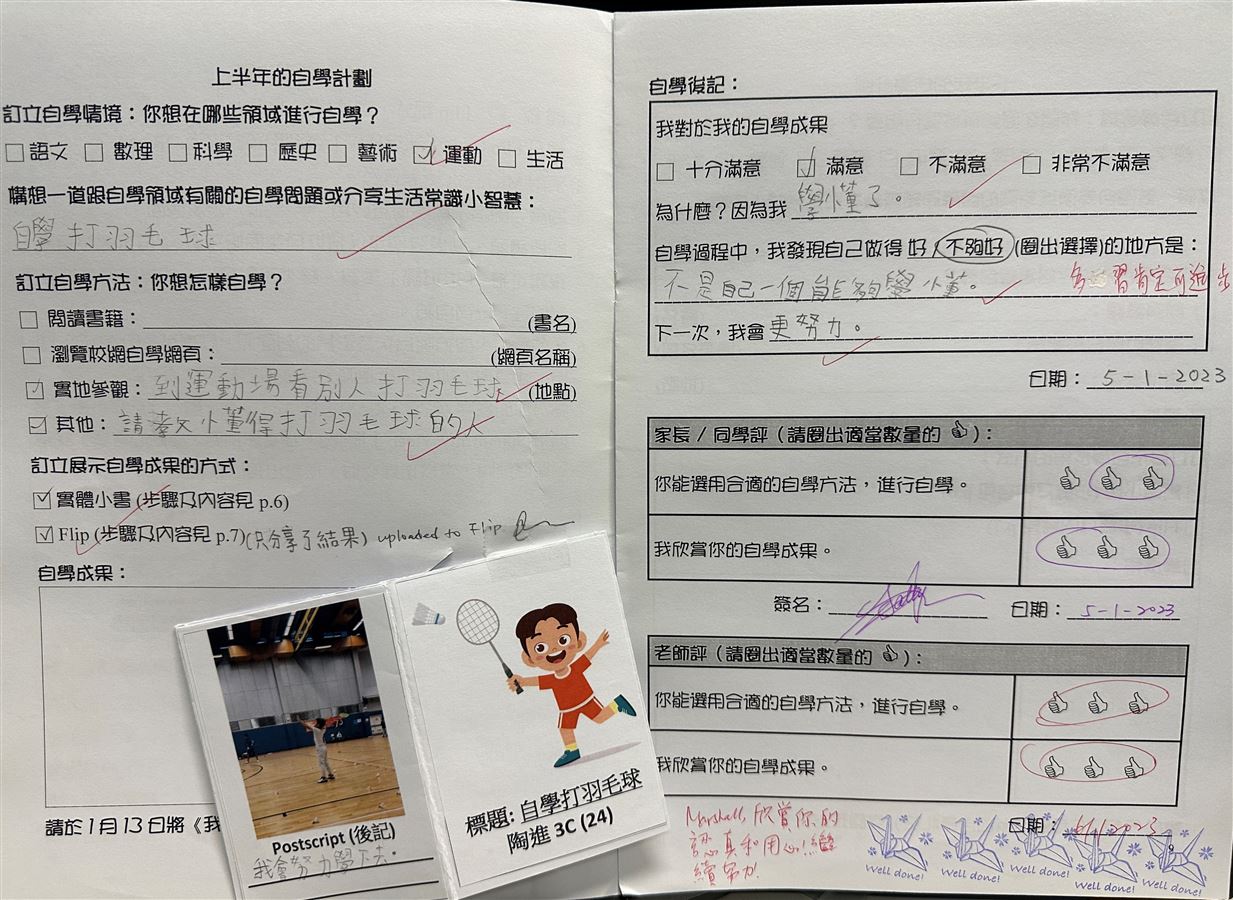 上半年的自學計劃
訂立自學情境：你想在哪些領域進行自學？
語文 數理 科學 歷史 藝術 運動 生活
構想一道跟自學領域有關的自學問題或分享生活常識小智慧：
自學打羽毛球
訂立自學方法：你想怎樣自學？
閱讀書籍：(書名)
瀏覽校網自學網頁：(網頁名稱)
實地參觀：到運動場看別人打羽毛球 (地點)
其他：請教懂得打羽毛球的人
訂立展示自學成果的方式：
實體小書 (步驟及內容見 p.6)
Flip (步驟及內容見 p.7) (只分享了結果) uploaded to Flip
自學成果：
請於1月13日將《我
Postscript (後記)
我會努力學下去。
標題: 自學打羽毛球
陶進 3C (24)
自學後記：
我對於我的自學成果
十分滿意 滿意 不滿意 非常不滿意
為什麼？因為我 學懂了。
自學過程中，我發現自己做得 好 / 不夠好 (圈出選擇)的地方是：
不是自己一個能夠學懂。
多 習肯定可進步
下一次，我會 更努力。
日期：5-1-2023
家長 / 同學評（請圈出適當數量的 👍）：
你能選用合適的自學方法，進行自學。 👍 👍 👍
我欣賞你的自學成果。 👍 👍 👍
簽名： 日期：5-1-2023
老師評（請圈出適當數量的 👍）：
你能選用合適的自學方法，進行自學。 👍 👍 👍
我欣賞你的自學成果。 👍 👍 👍
日期：6/1/2023
Marshall, 欣賞你的
認真和用心！繼
續努力！
Well done! Well done! Well done! Well done! Well done!